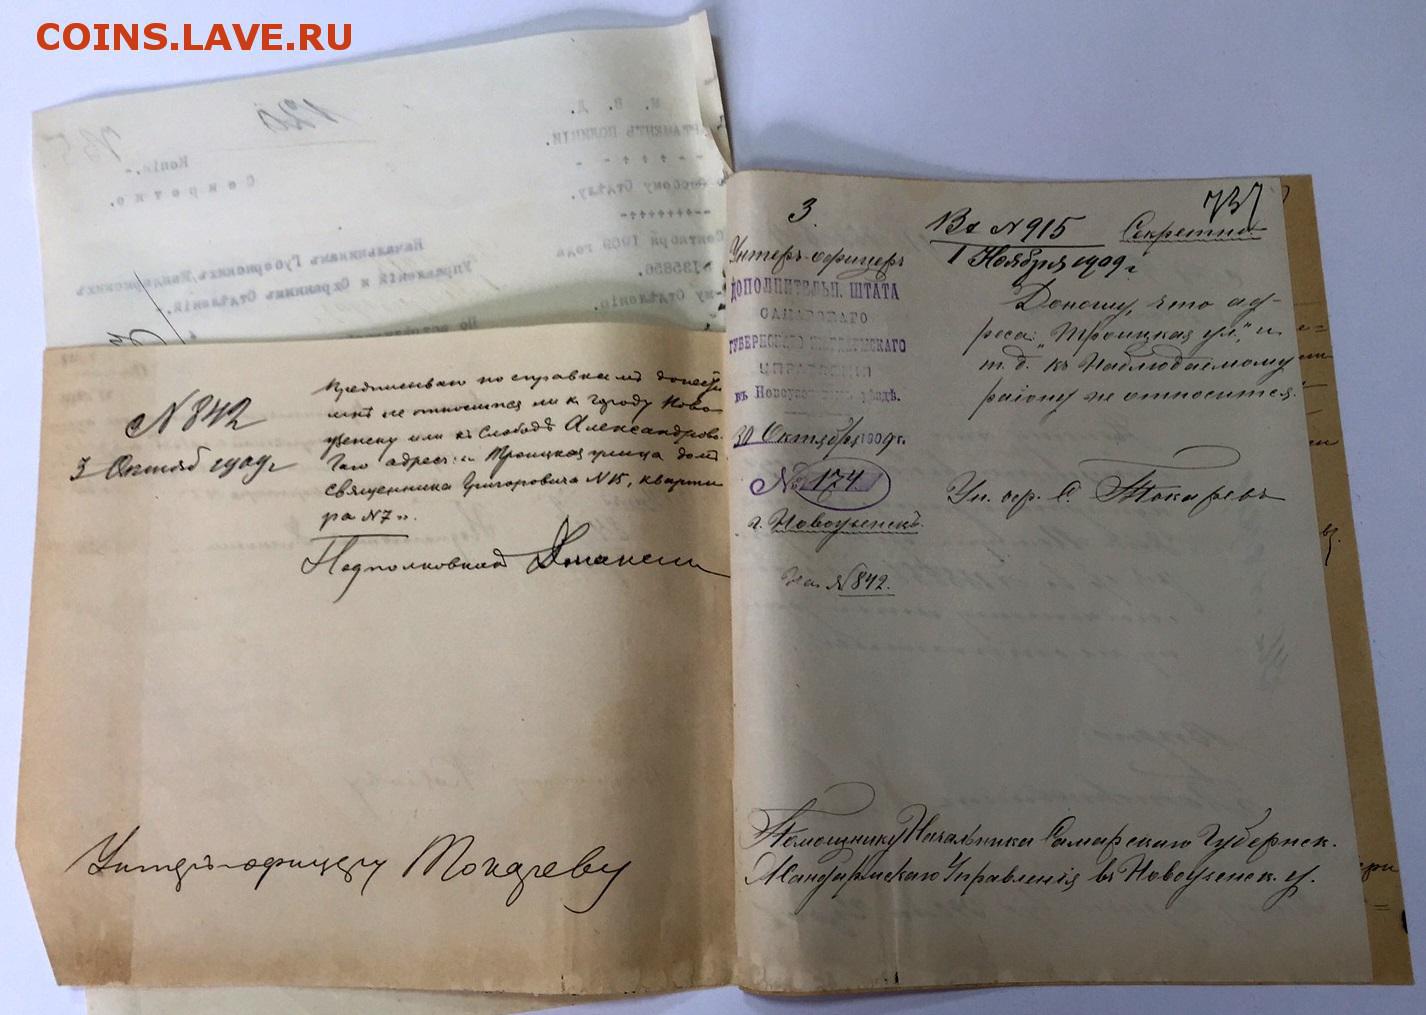 COINS.LAVE.RU
М. В. Д.
ДЕПАРТАМЕНТЪ ПОЛИЦІИ.
Особому Отдѣлу.
Сентября 1909 года
135856.
Отдѣленію.
Копія.
Секретно.
Начальникамъ Губернскихъ Жандармскихъ
Управленій и Охраннымъ Отдѣленій.
120
735
N 842
3 Октяб 1909 г
Предписываю по справкамъ донести
мнѣ не относится ли к городу Ново-
узенску или къ Слободѣ Александров.
Гаю адресъ: "Троицкая улица домъ
священника Григоровича N 15, кварти
ра N 7".
Подполковникъ
Унтеръ-офицеру Токареву
3.
737
Унтеръ-офицеръ
ДОПОЛНИТЕЛЬН. ШТАТА
САМАРСКАГО
ГУБЕРНСКАГО ЖАНДАРМСКАГО
УПРАВЛЕНІЯ
въ Новоузенскомъ уѣздѣ.
30 Октября 1909 г.
№ 174
г. Новоузенскъ.
На № 842.
Вх N 915 Секретно
1 Ноября 1909 г
Доношу, что ад-
реса: "Троицкая ул", и
т. д. къ Наблюдаемому
району не относится.
Ун. оф. С. Токаревъ
Помощнику Начальника Самарскаго Губернск.
Жандармскаго Управленія въ Новоузенск. у.